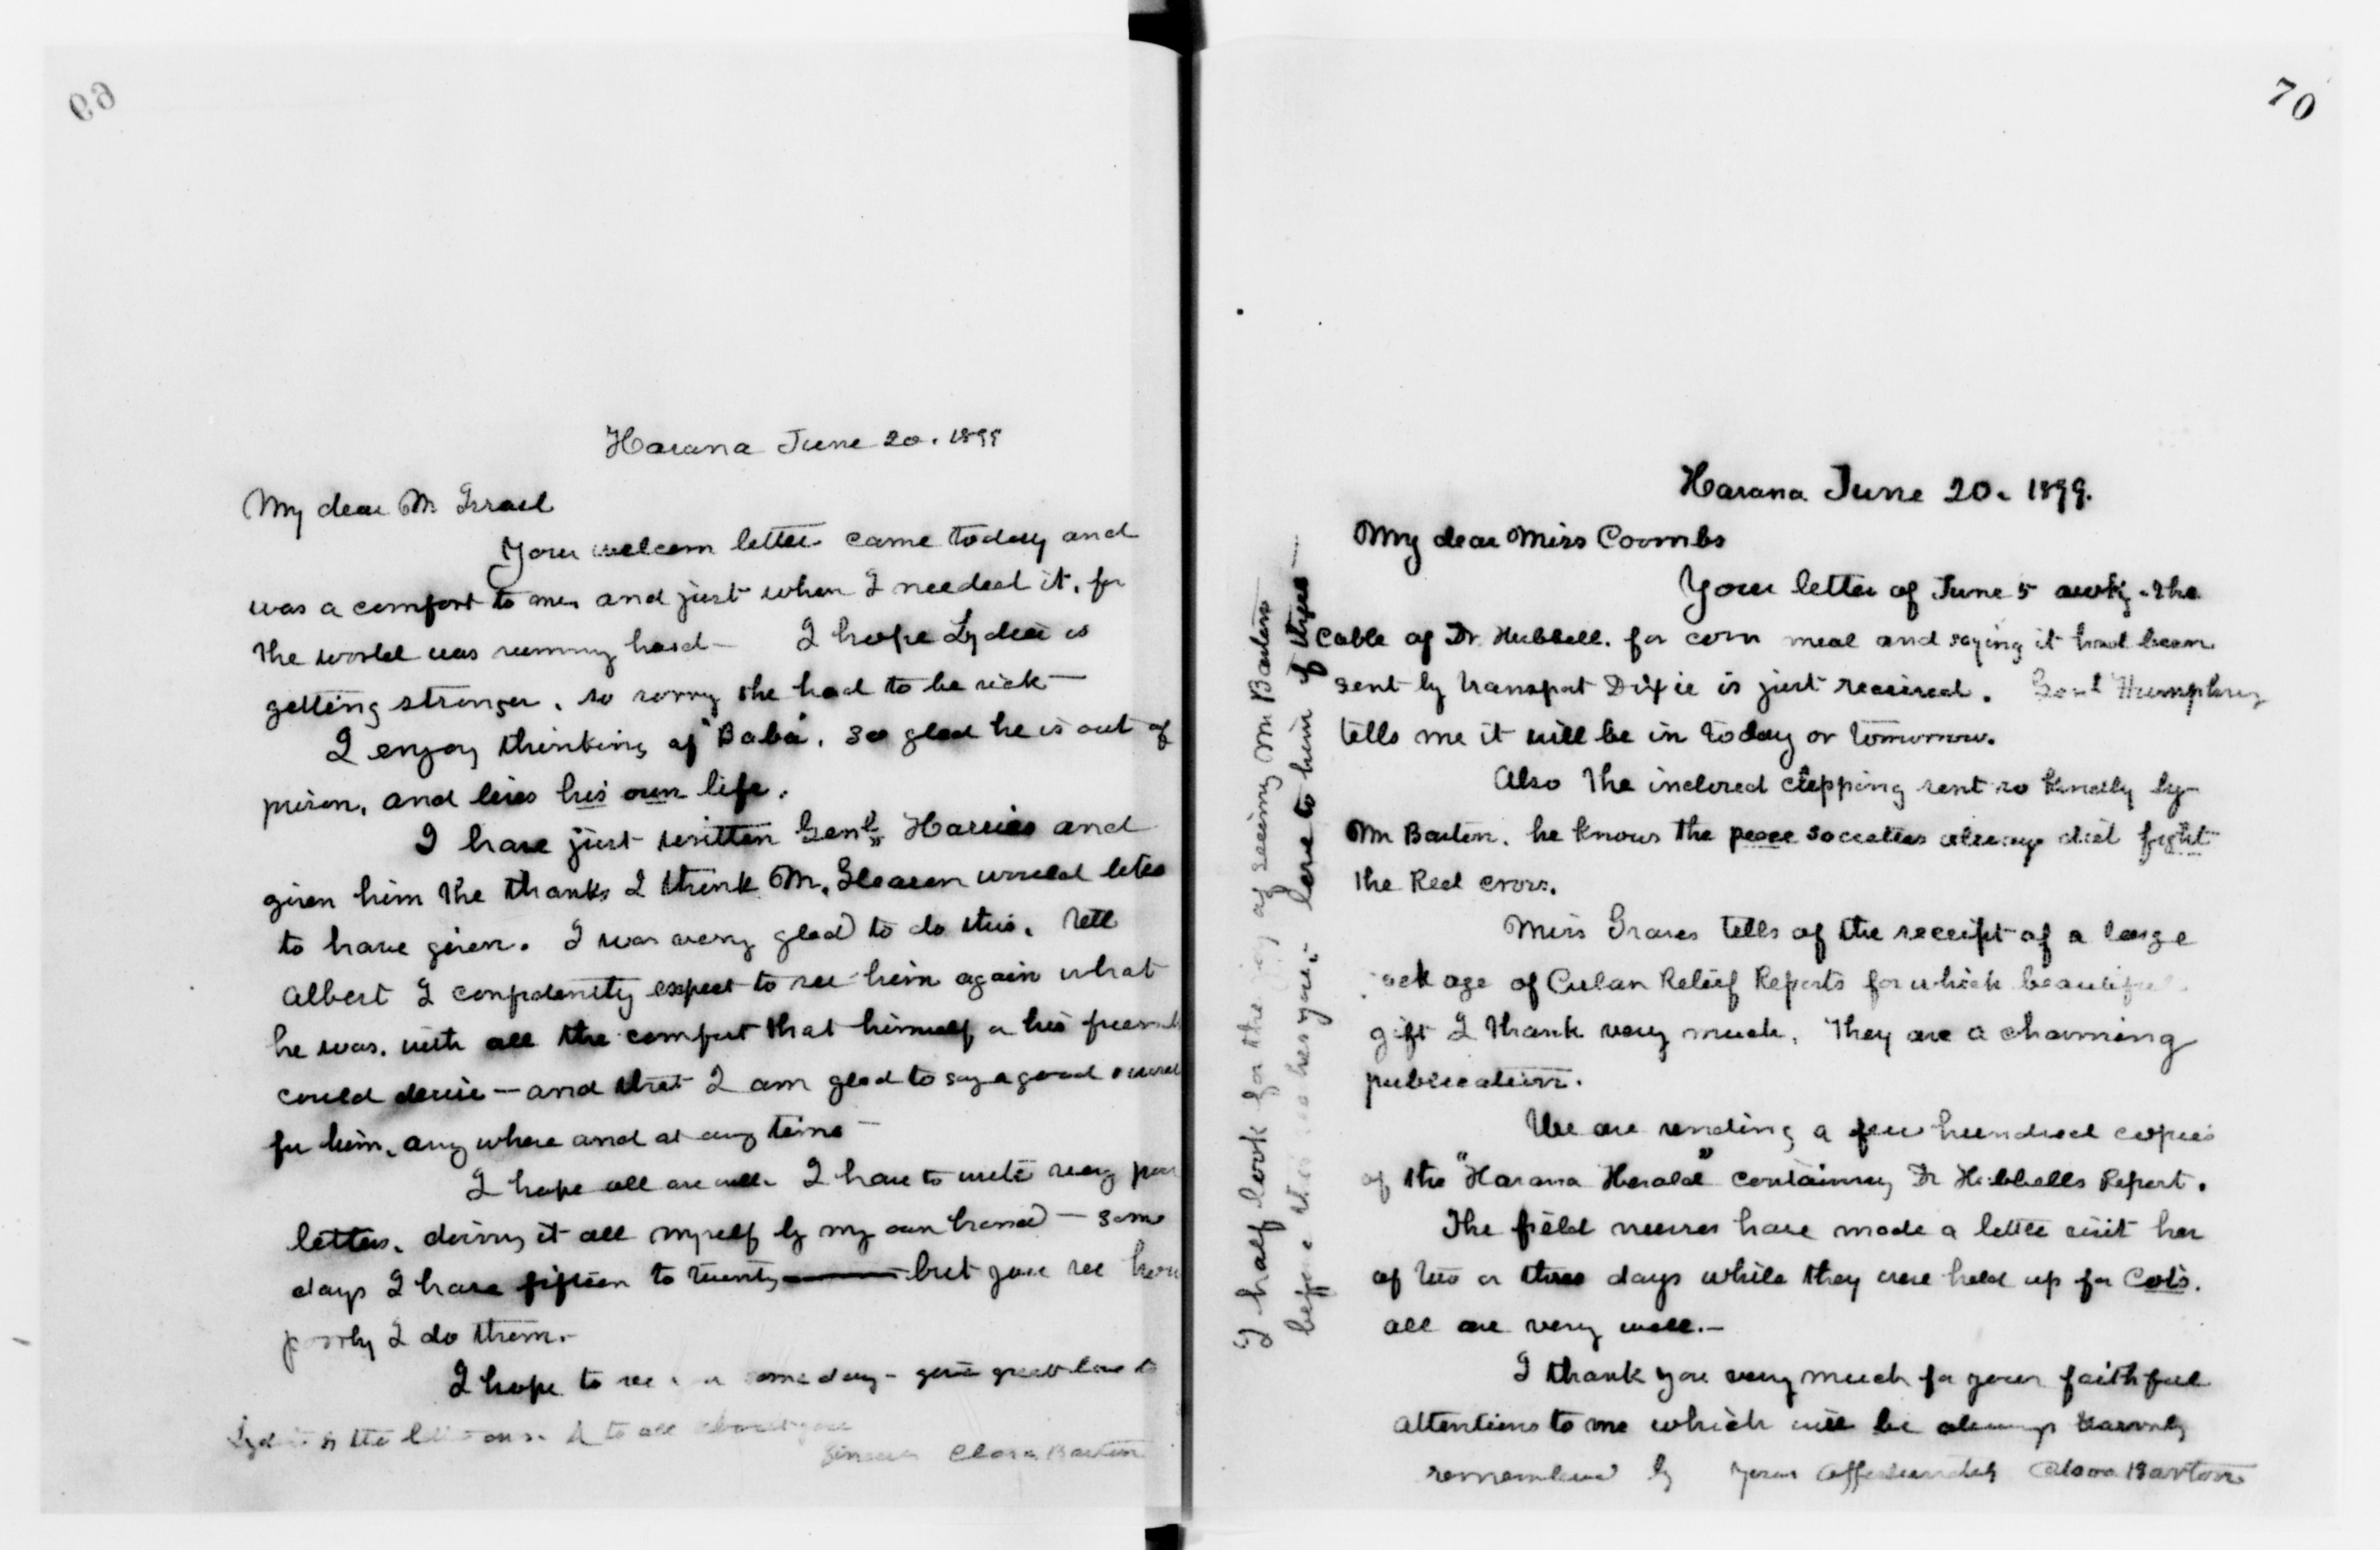 69
Havana June 20. 1899
My dear Mr Israel
Your welcom letter came today and
was a comfort to me, and just when I needed it, for
the world was running hard — I hope Lydia is
getting stronger, so sorry she had to be sick —
I enjoy thinking of "Baba", so glad he is out of
prison, and lives his own life.
I have just written Genl. Harries and
given him the thanks I think Mr. Gleason would like
to have given. I was very glad to do this. Tell
Albert I confidently expect to see him again what
he was, with all the comfort that himself or his friends
could desire — and that I am glad to say a good word
for him, any where and at any time —
I hope all are well. I have to write very poor
letters, doing it all myself by my own hand — some
days I have fifteen to twenty but you see how
poorly I do them. —
I hope to see some day — give great love to
to the to all about you
Sincerely Clara Barton
70
Havana June 20. 1899.
My dear Miss Coombs
Your letter of June 5 ackg. the
cable of Dr. Hubbell. for corn meal and saying it had been
sent by transport Dixie is just received. Genl Humphrey
tells me it will be in today or tomorrow.
Also the inclosed clipping sent so kindly by
Mr Barton. he knows the peace societies always did fight
the Red cross.
Miss Graves tells of the receipt of a large
package of Cuban Relief Reports for which beautiful
gift I thank very much. They are a charming
publication.
We are sending a few hundred copies
of the "Havana Herald" containing Dr Hubbells Report.
The field nurses have made a little visit her
of two or three days while they were held up for Cots.
all are very well. —
I thank you very much for your faithful
attentions to me which will be always warmly
remembered by yours affectionately Clara Barton
I half look for the joy of seeing Mr Barton
before this reaches you: — love to him if there —